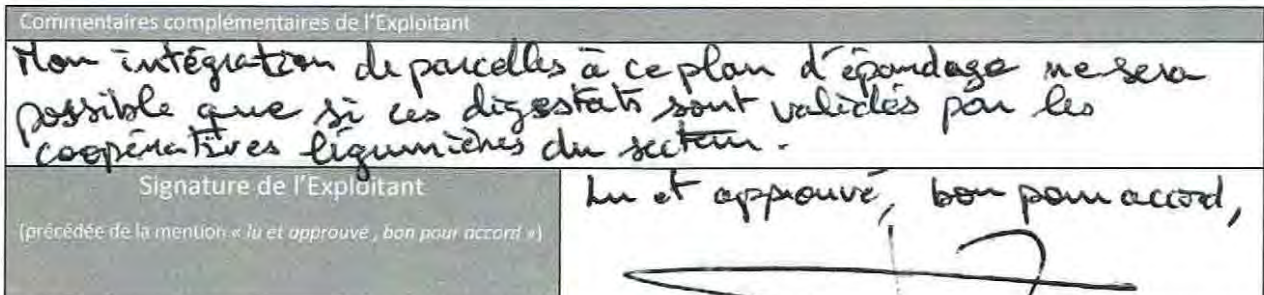 Commentaires complémentaires de l'Exploitant
Mon intégration de parcelles à ce plan d'épandage ne sera
possible que si ces digestats sont validés par les
coopératives légumières du secteur.
Signature de l'Exploitant
(précédée de la mention « lu et approuvé , bon pour accord »)
Lu et approuvé, bon pour accord,